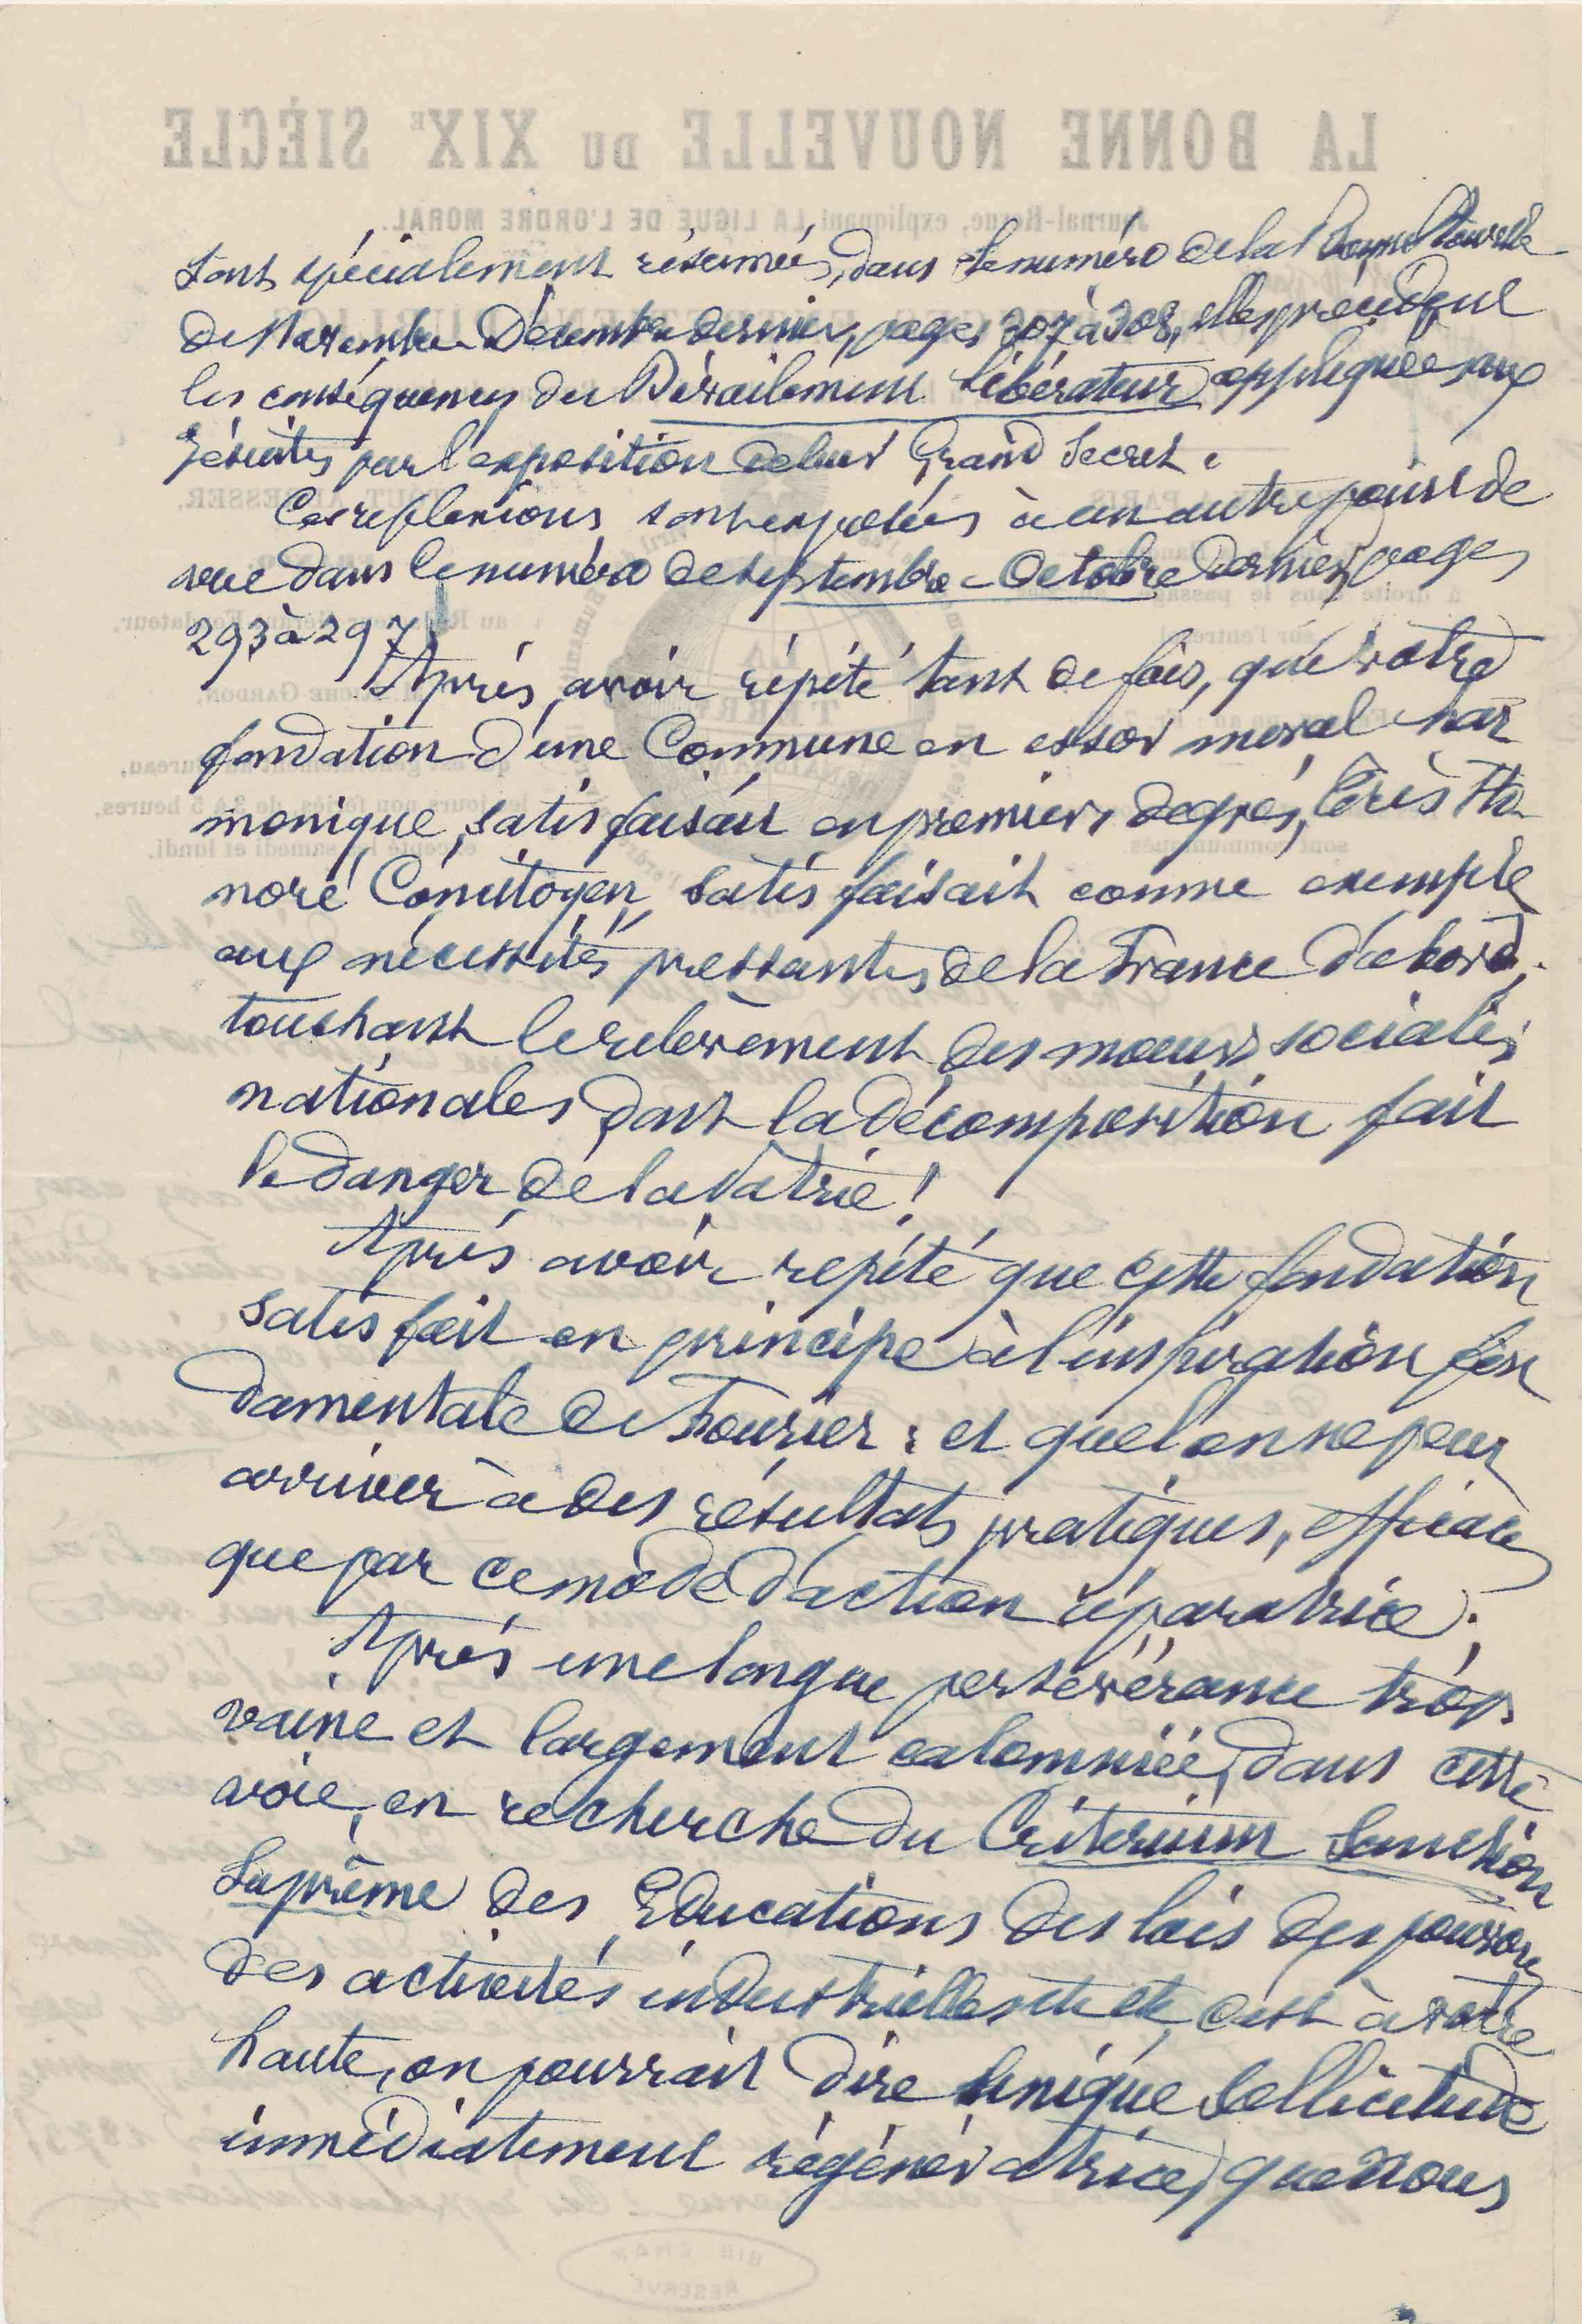 sont spécialement résumées, dans le numéro de la Bonne Nouvelle
de Novembre Décembre dernier, pages 307 à 308, elles précisent que
les conséquences du Déraillement libérateur appliquée aux
Jésuites par l'exposition de leur Grand Secret.
Ces reflexions sont exposées à un autre point de
vue dans le numéro de septembre - Octobre dernier, pages
293 à 297
Après, avoir répété tant de fois, que votre
fondation d'une Commune en essor moral har
monique, satisfaisant en premiers degrés, très Ho
noré Concitoyen, satisfaisait comme exemple
aux nécessités pressantes de la France d'abord,
touchant le relèvement des mœurs sociales,
nationales dont la décomposition fait
le danger de la Patrie !
Après avoir repété que cette fondation
satisfait en principe à l'inspiration fon
damentale de Fourier : et que l'on ne peut
arriver à des résultats pratiques, efficaces
que par ce mode d'action réparatrice.
Après une longue persévérance trop
vaine et largement calomniée, dans cette
voie, en recherche du Critérium Sanction
Suprême des Educations des lois des pouvoirs
des activités industrielles etc etc, c'est à votre
haute, on pourrait dire unique Sollicitude
immédiatement régénératrice, que nous